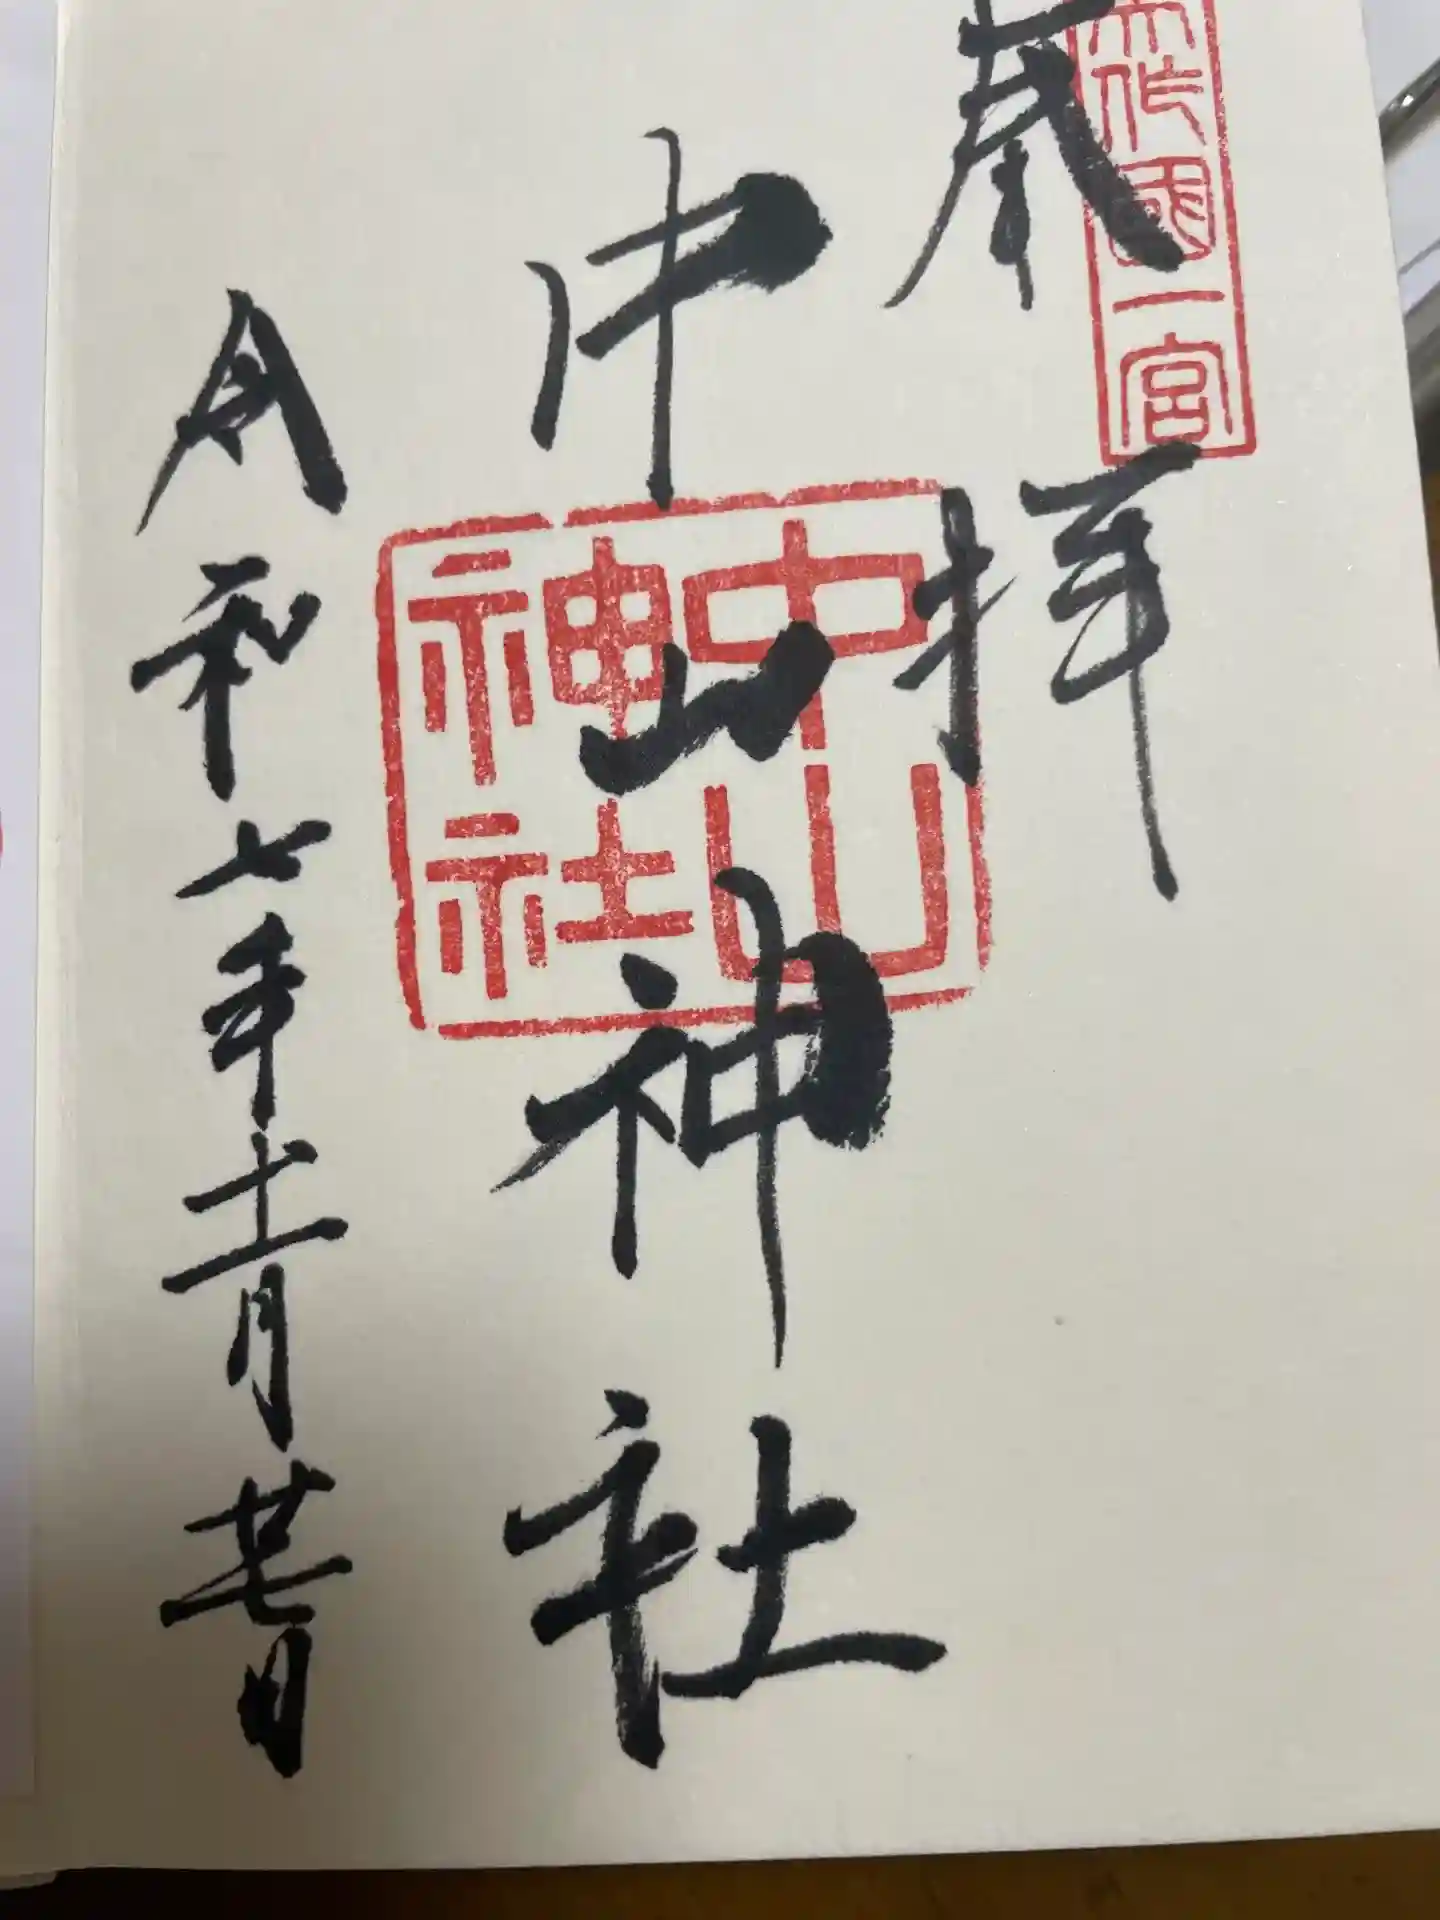 美作國一宮
奉拝
中山神社
中山
神社
令和七年十一月廿七日